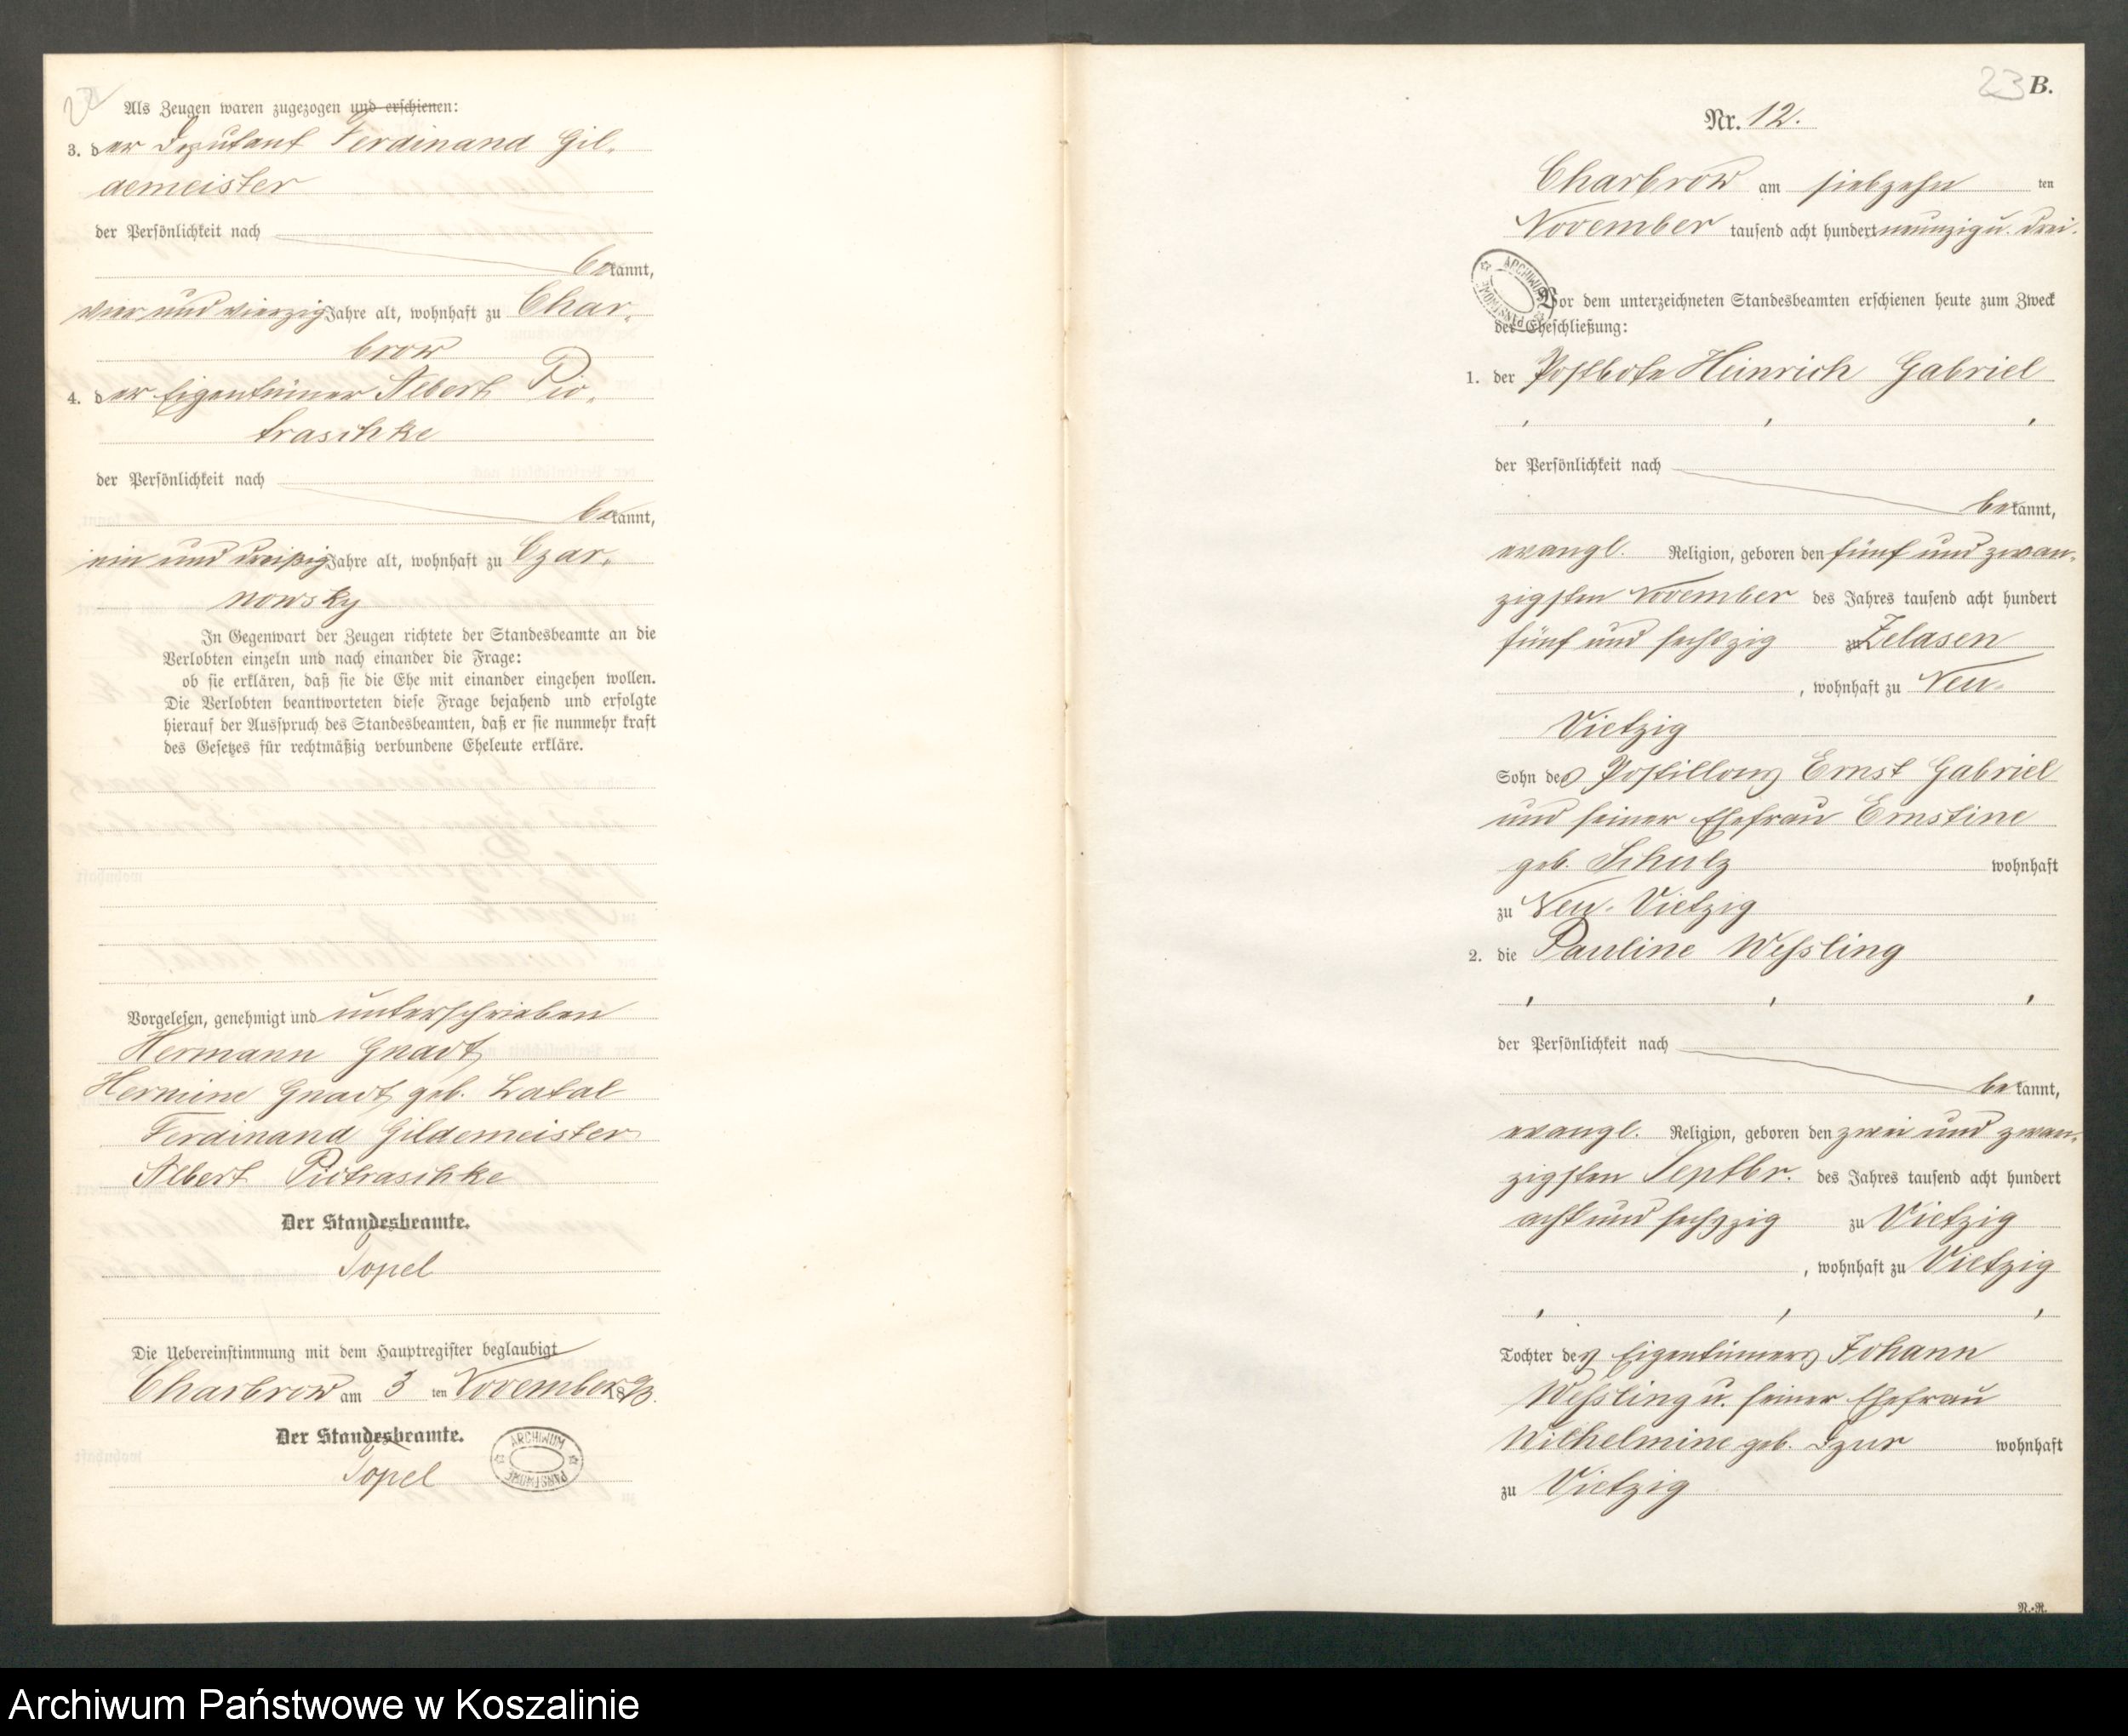 Als Zeugen waren zugezogen und erschienen:
3. der Deputant Ferdinand Gil-
demeister
der Persönlichkeit nach
bekannt,
vier und vierzig Jahre alt, wohnhaft zu Char-
brow
4. der Eigentümer Albert Pie-
traschke
der Persönlichkeit nach
bekannt,
ein und dreißig Jahre alt, wohnhaft zu Czar-
nowsky
In Gegenwart der Zeugen richtete der Standesbeamte an die
Verlobten einzeln und nach einander die Frage:
ob sie erklären, daß sie die Ehe mit einander eingehen wollen.
Die Verlobten beantworteten diese Frage bejahend und erfolgte
hierauf der Ausspruch des Standesbeamten, daß er sie nunmehr kraft
des Gesetzes für rechtmäßig verbundene Eheleute erkläre.
Vorgelesen, genehmigt und unterschrieben
Hermann Gnadt
Hermine Gnadt geb. Latal
Ferdinand Gildemeister
Albert Pietraschke
Der Standesbeamte.
Topel
Die Uebereinstimmung mit dem Hauptregister beglaubigt
Charbrow am 3 ten November 1893.
Der Standesbeamte.
Topel
ARCHIWUM PAŃSTWOWE
23 B.
Nr. 12.
Charbrow am siebzehn ten
November tausend acht hundert neunzig u. drei.
ARCHIWUM PAŃSTWOWE
Vor dem unterzeichneten Standesbeamten erschienen heute zum Zweck
der Eheschließung:
1. der Postbote Heinrich Gabriel
der Persönlichkeit nach
bekannt,
evangl. Religion, geboren den fünf und zwan-
zigsten November des Jahres tausend acht hundert
fünf und sechszig zu Zelasen
, wohnhaft zu Neu-
Vietzig
Sohn des Postillons Ernst Gabriel
und seiner Ehefrau Ernstine
geb. Schulz wohnhaft
zu Neu-Vietzig
2. die Pauline Weßling
der Persönlichkeit nach
bekannt,
evangl. Religion, geboren den zwei und zwan-
zigsten Septbr. des Jahres tausend acht hundert
acht und sechszig zu Vietzig
, wohnhaft zu Vietzig
Tochter des Eigentümers Johann
Weßling u. seiner Ehefrau
Wilhelmine geb. Dzur wohnhaft
zu Vietzig
N.-R.
Archiwum Państwowe w Koszalinie